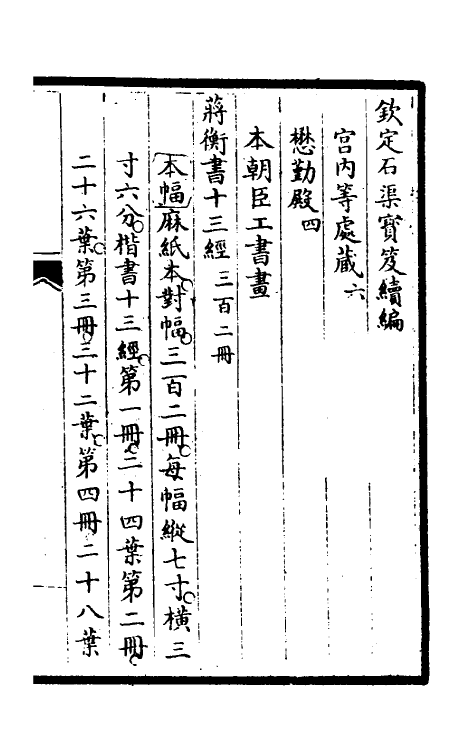 欽定石渠寶笈續編
宮内等處藏六
懋勤殿四
本朝臣工書畫
蔣衡書十三經三百二冊
本幅麻紙本對幅三百二冊每幅縱七寸橫三
寸六分楷書十三經第一冊二十四葉第二冊
二十六葉第三冊三十二葉第四冊二十八葉